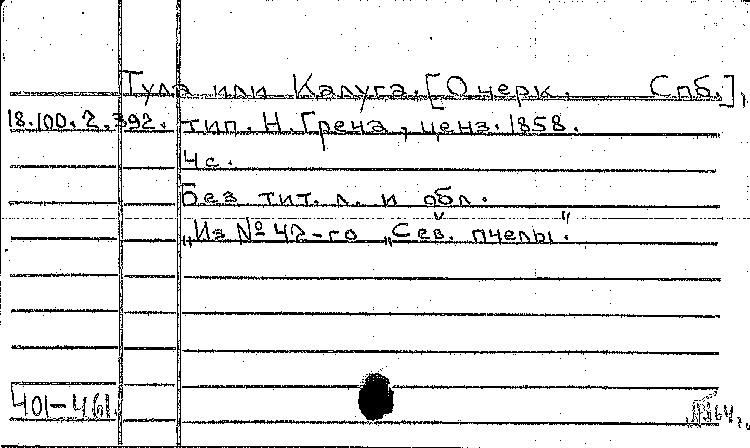 Тула или Калуга. [Очерк. Спб.],
18.100.2.392. тип. Н. Греча, ценз. 1858.
4 с.
Без тит. л. и обл.
„Из № 42-го „Сев. пчелы".
401-461.